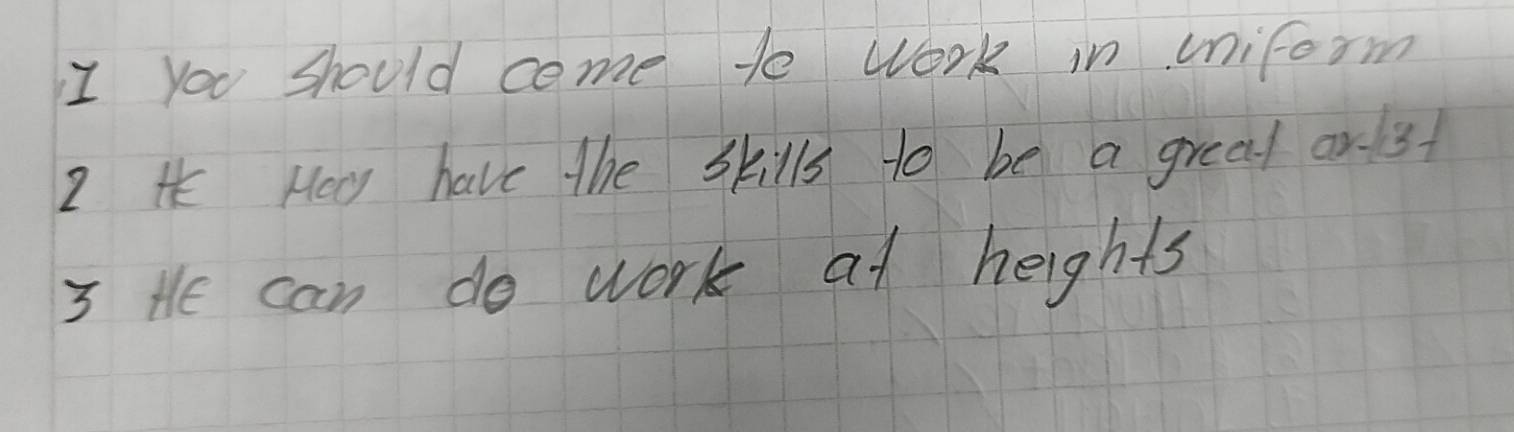 1 You should come to work in uniform
2 He May have the skills to be a great artist
3 HE can do work at heights